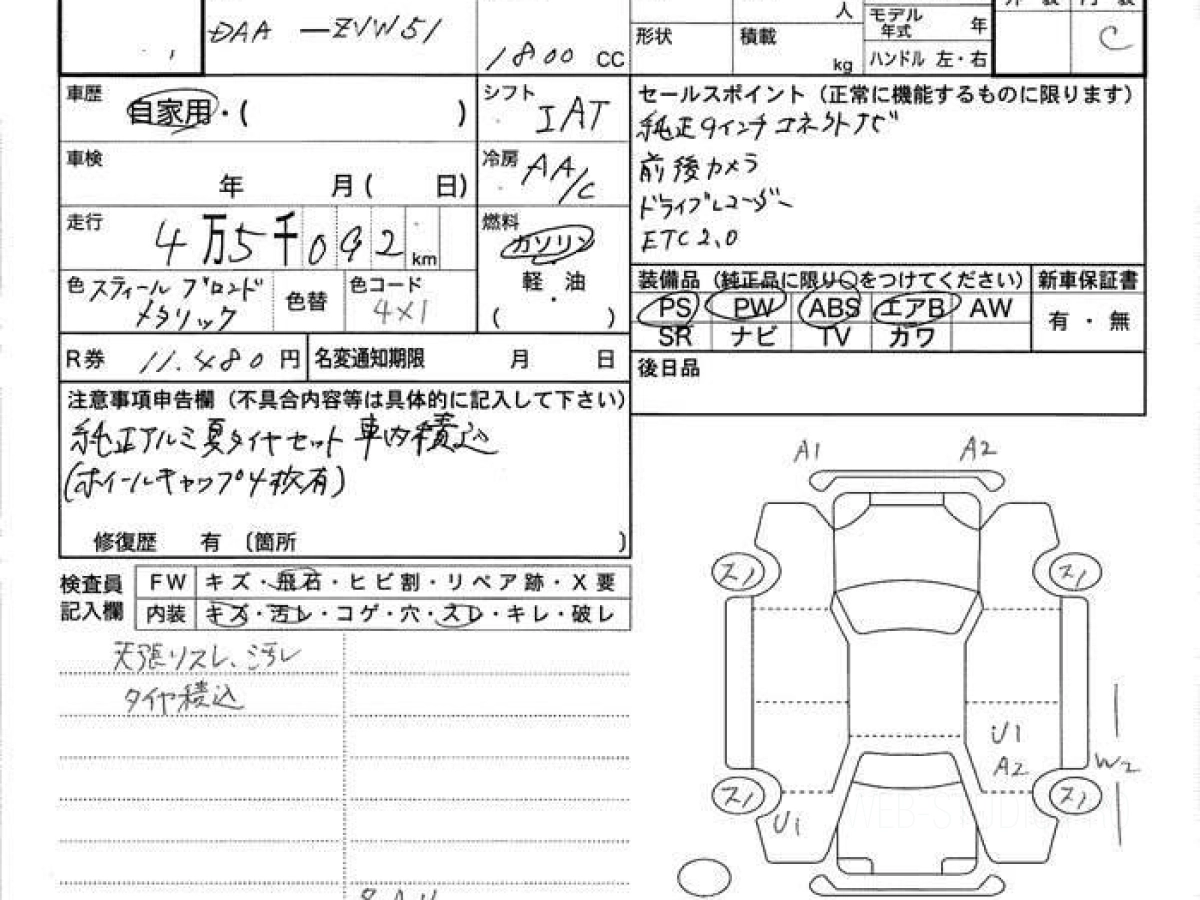 DAA-ZVW51
1800 CC
人
形状 積載 kg
モデル年式 年
ハンドル 左・右
C
車歴 自家用・( )
シフト IAT
車検 年 月( 日)
冷房 AA/C
走行 4万5千092km
燃料 ガソリン
軽・油
( )
色 スティール ブロンド
メタリック
色替
色コード 4X1
R券 11,480円
名変通知期限 月 日
セールスポイント(正常に機能するものに限ります)
純正9インチコネクトナビ
前後カメラ
ドライブレコーダー
ETC2.0
装備品(純正品に限り○をつけてください)
PS PW ABS エアB AW
SR ナビ TV カワ
新車保証書
有・無
後日品
注意事項申告欄(不具合内容等は具体的に記入して下さい)
純正アルミ夏タイヤセット 車内積込
(ホイールキャップ4枚有)
修復歴 有 〔箇所 〕
検査員記入欄
FW キズ・飛石・ヒビ割・リペア跡・X要
内装 キズ・汚レ・コゲ・穴・スレ・キレ・破レ
天張リスレ、汚レ
タイヤ積込
A1 A2
スリ スリ
U1
A2
W2
スリ スリ
U1
WEB-STUDIO